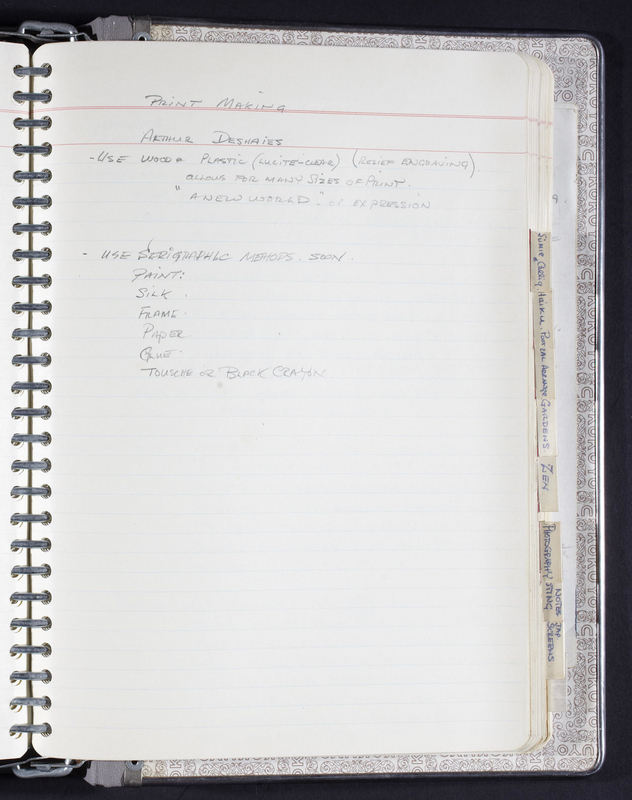 PRINT MAKING
ARTHUR DESHAIES
- USE WOOD & PLASTIC (LUCITE-CLEAR) (RELIEF ENGRAVING)
ALLOWS FOR MANY SIZES OF PRINT.
"A NEW WORLD" OF EXPRESSION
- USE SERIGRAPHIC METHODS. SOON.
PAINT:
SILK.
FRAME.
PAPER
GLUE.
TOUSCHE OR BLACK CRAYON
SUMIE, CALLIG, HAIKU,
GARDENS
ZEN
PHOTOGRAPHY
NOTES JAP
SCREENS